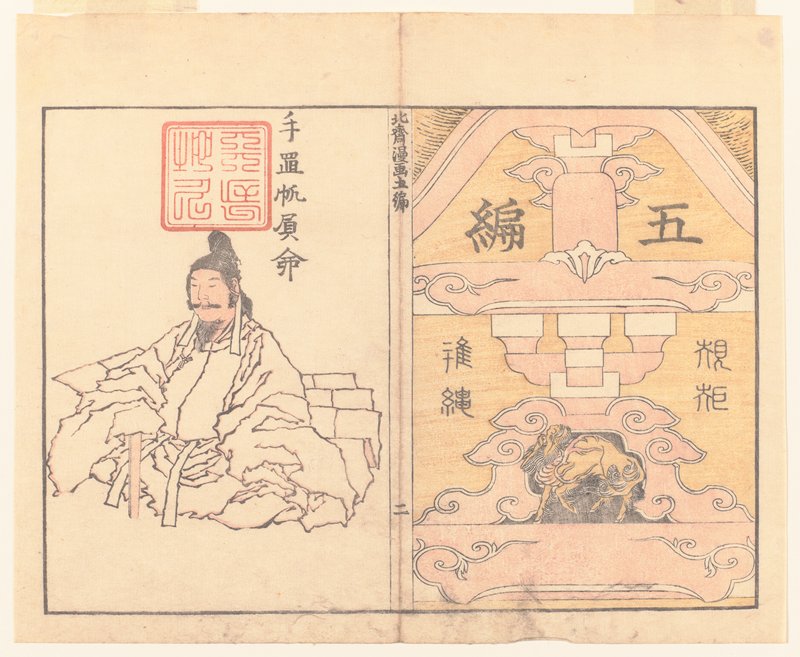 五編
規矩
準縄
北齋漫画五編
二
手置帆負命